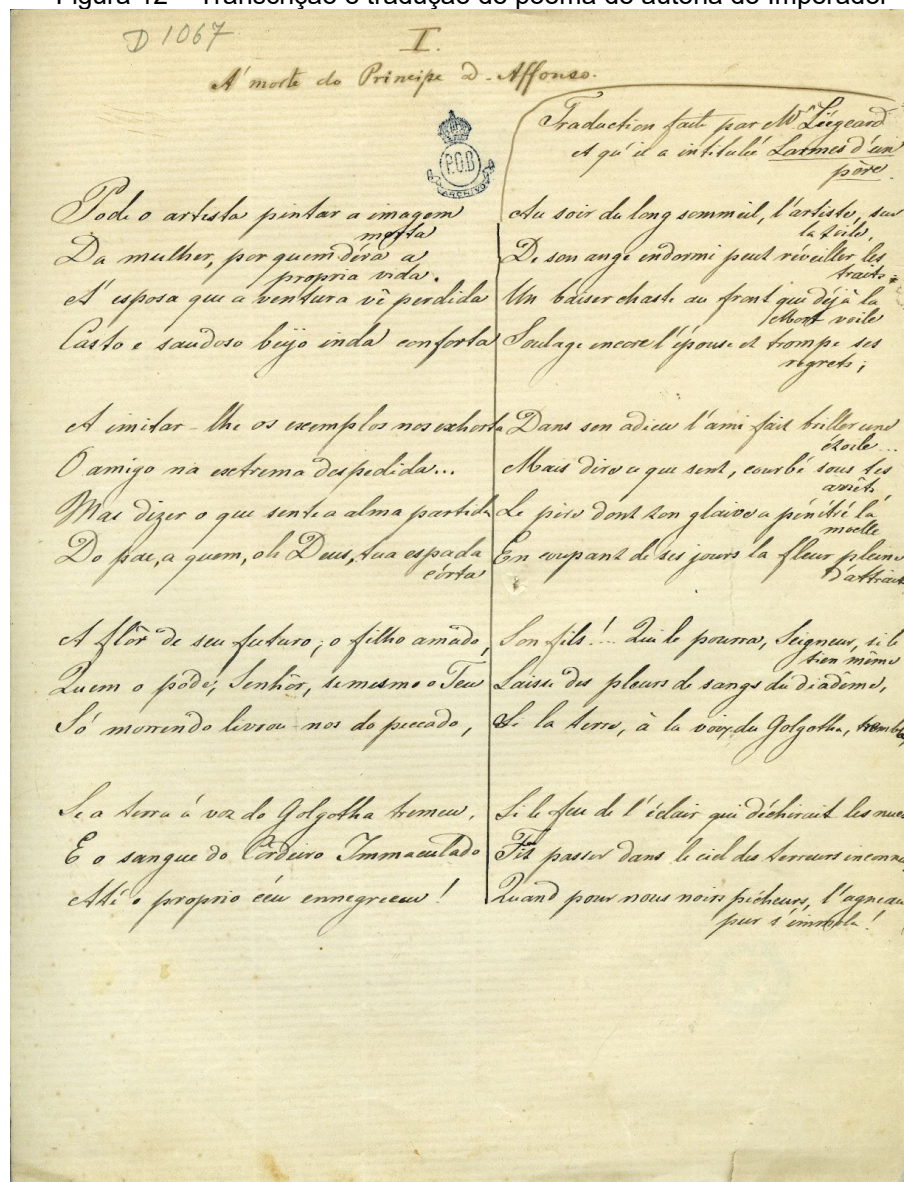 Figura 12 – Transcrição e tradução de poema de autoria do Imperador
D 1067
I.
A' morte do Principe D. Affonso.
P.O.B
ARCHIVO
Traduction faite par Mr Liégeard
et qu'il a intitulée Larmes d'un
père.
Pode o artista pintar a imagem
morta
Da mulher, por quem déra a
propria vida.
A' esposa que a ventura vê perdida
Casto e saudoso beijo inda conforta
A imitar-lhe os exemplos nos exhorta
O amigo na extrema despedida...
Mas dizer o que sente a alma partida
Do pae, a quem, oh Deus, tua espada
córta
A flôr de seu futuro, o filho amado,
Quem o póde, Senhôr, se mesmo o Teu
Só morrendo livrou-nos do peccado,
Se a terra á voz do Golgotha tremeu,
E o sangue do Cordeiro Immaculado
Até o proprio céu ennegreceu!
Au soir du long sommeil, l'artiste, sur
la toile,
De son ange endormi peut réveiller les
traits
Un baiser chaste au front qui déjà la
Mort voile
Soulage encore l'épouse et trompe ses
regrets;
Dans son adieu l'ami fait briller une
étoile...
Mais dire ce que sent, courbé sous tes
arrêts
Le père dont ton glaive a pénétré la
moelle
En coupant de ses jours la fleur pleine
d'attraits
Son fils!... Qui le pourra, Seigneur, si le
tien même
Laisse des pleurs de sangs du diadême,
Si la terre, à la voix du Golgotha, trembla,
Si le feu de l'éclair qui déchirait les nues
Fit passer dans le ciel des terreurs inconnues
Quand pour nous noirs pécheurs, l'agneau
pur s'immola!